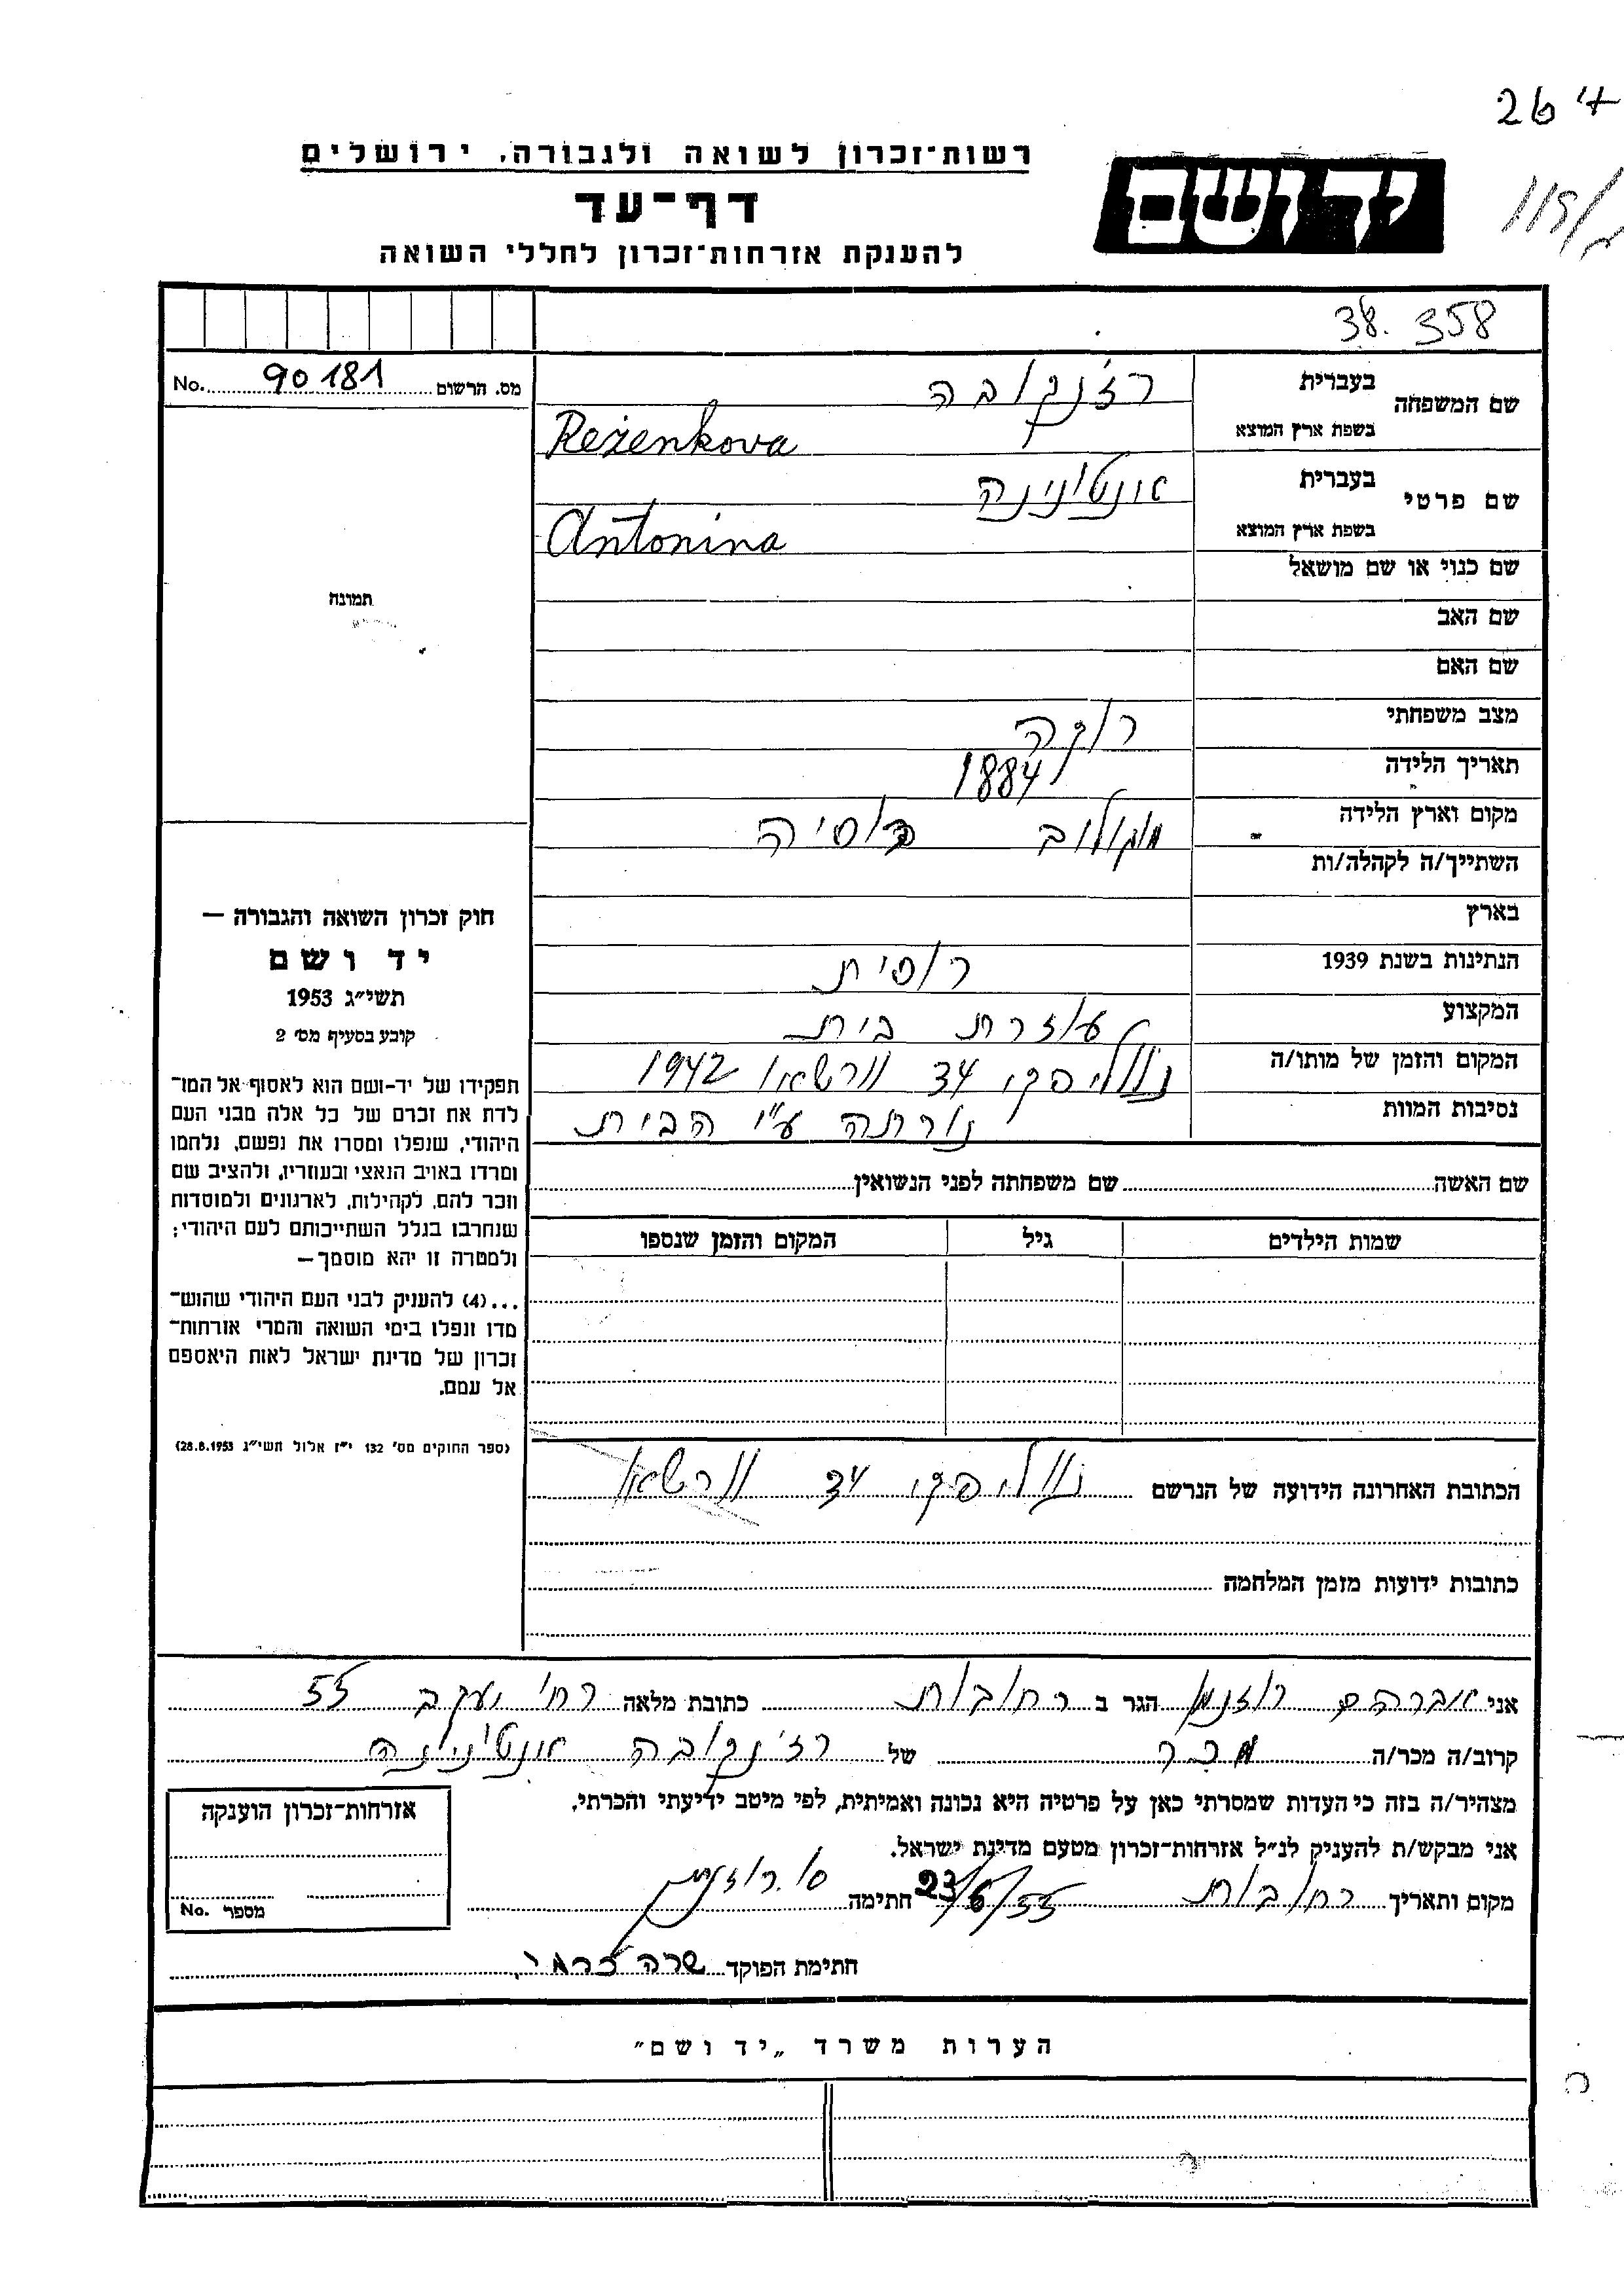 264
רשות־זכרון לשואה ולגבורה, ירושלים
יד ושם
דף־עד
להענקת אזרחות־זכרון לחללי השואה
38. 358
מס. הרשום 90181 No.
שם המשפחה
בעברית רז'נקובה
בשפת ארץ המוצא Reżenkova
שם פרטי
בעברית אנטונינה
בשפת ארץ המוצא Antonina
שם כנוי או שם מושאל
שם האב
שם האם
מצב משפחתי רוקה
תאריך הלידה 1884
מקום וארץ הלידה רוסיה
השתייך/ה לקהלה/ות
בארץ
הנתינות בשנת 1939 רוסית
המקצוע עוזרת בית
המקום והזמן של מותו/ה נובוליפקי 34 וורשאו 1942
נסיבות המוות נורתה ע"י הבית
תמונה
חוק זכרון השואה והגבורה —
יד ושם
תשי״ג 1953
קובע בסעיף מס׳ 2
תפקידו של יד־ושם הוא לאסוף אל המו־
לדת את זכרם של כל אלה מבני העם
היהודי, שנפלו ומסרו את נפשם, נלחמו
ומרדו באויב הנאצי ובעוזריו, ולהציב שם
וזכר להם, לקהילות, לארגונים ולמוסדות
שנחרבו בגלל השתייכותם לעם היהודי;
ולמטרה זו יהא מוסמך —
...(4) להעניק לבני העם היהודי שהוש־
מדו ונפלו בימי השואה והמרי אזרחות־
זכרון של מדינת ישראל לאות היאספם
אל עמם.
(ספר החוקים מס׳ 132 י״ז אלול תשי״ג 28.8.1953)
שם האשה שם משפחתה לפני הנשואין
שמות הילדים גיל המקום והזמן שנספו
הכתובת האחרונה הידועה של הנרשם נובוליפקי 34 וורשאו
כתובות ידועות מזמן המלחמה
אני אברהם רוזנמן הגר ב רחובות כתובת מלאה רח' יעקב 55
קרוב/ה מכר/ה מכר של רז'נקובה אנטונינה
מצהיר/ה בזה כי העדות שמסרתי כאן על פרטיה היא נכונה ואמיתית, לפי מיטב ידיעתי והכרתי.
אני מבקש/ת להעניק לנ״ל אזרחות־זכרון מטעם מדינת ישראל.
מקום ותאריך רחובות 23/6/55 חתימה
אזרחות־זכרון הוענקה
מספר No.
חתימת הפוקד שרה
הערות משרד „יד ושם״